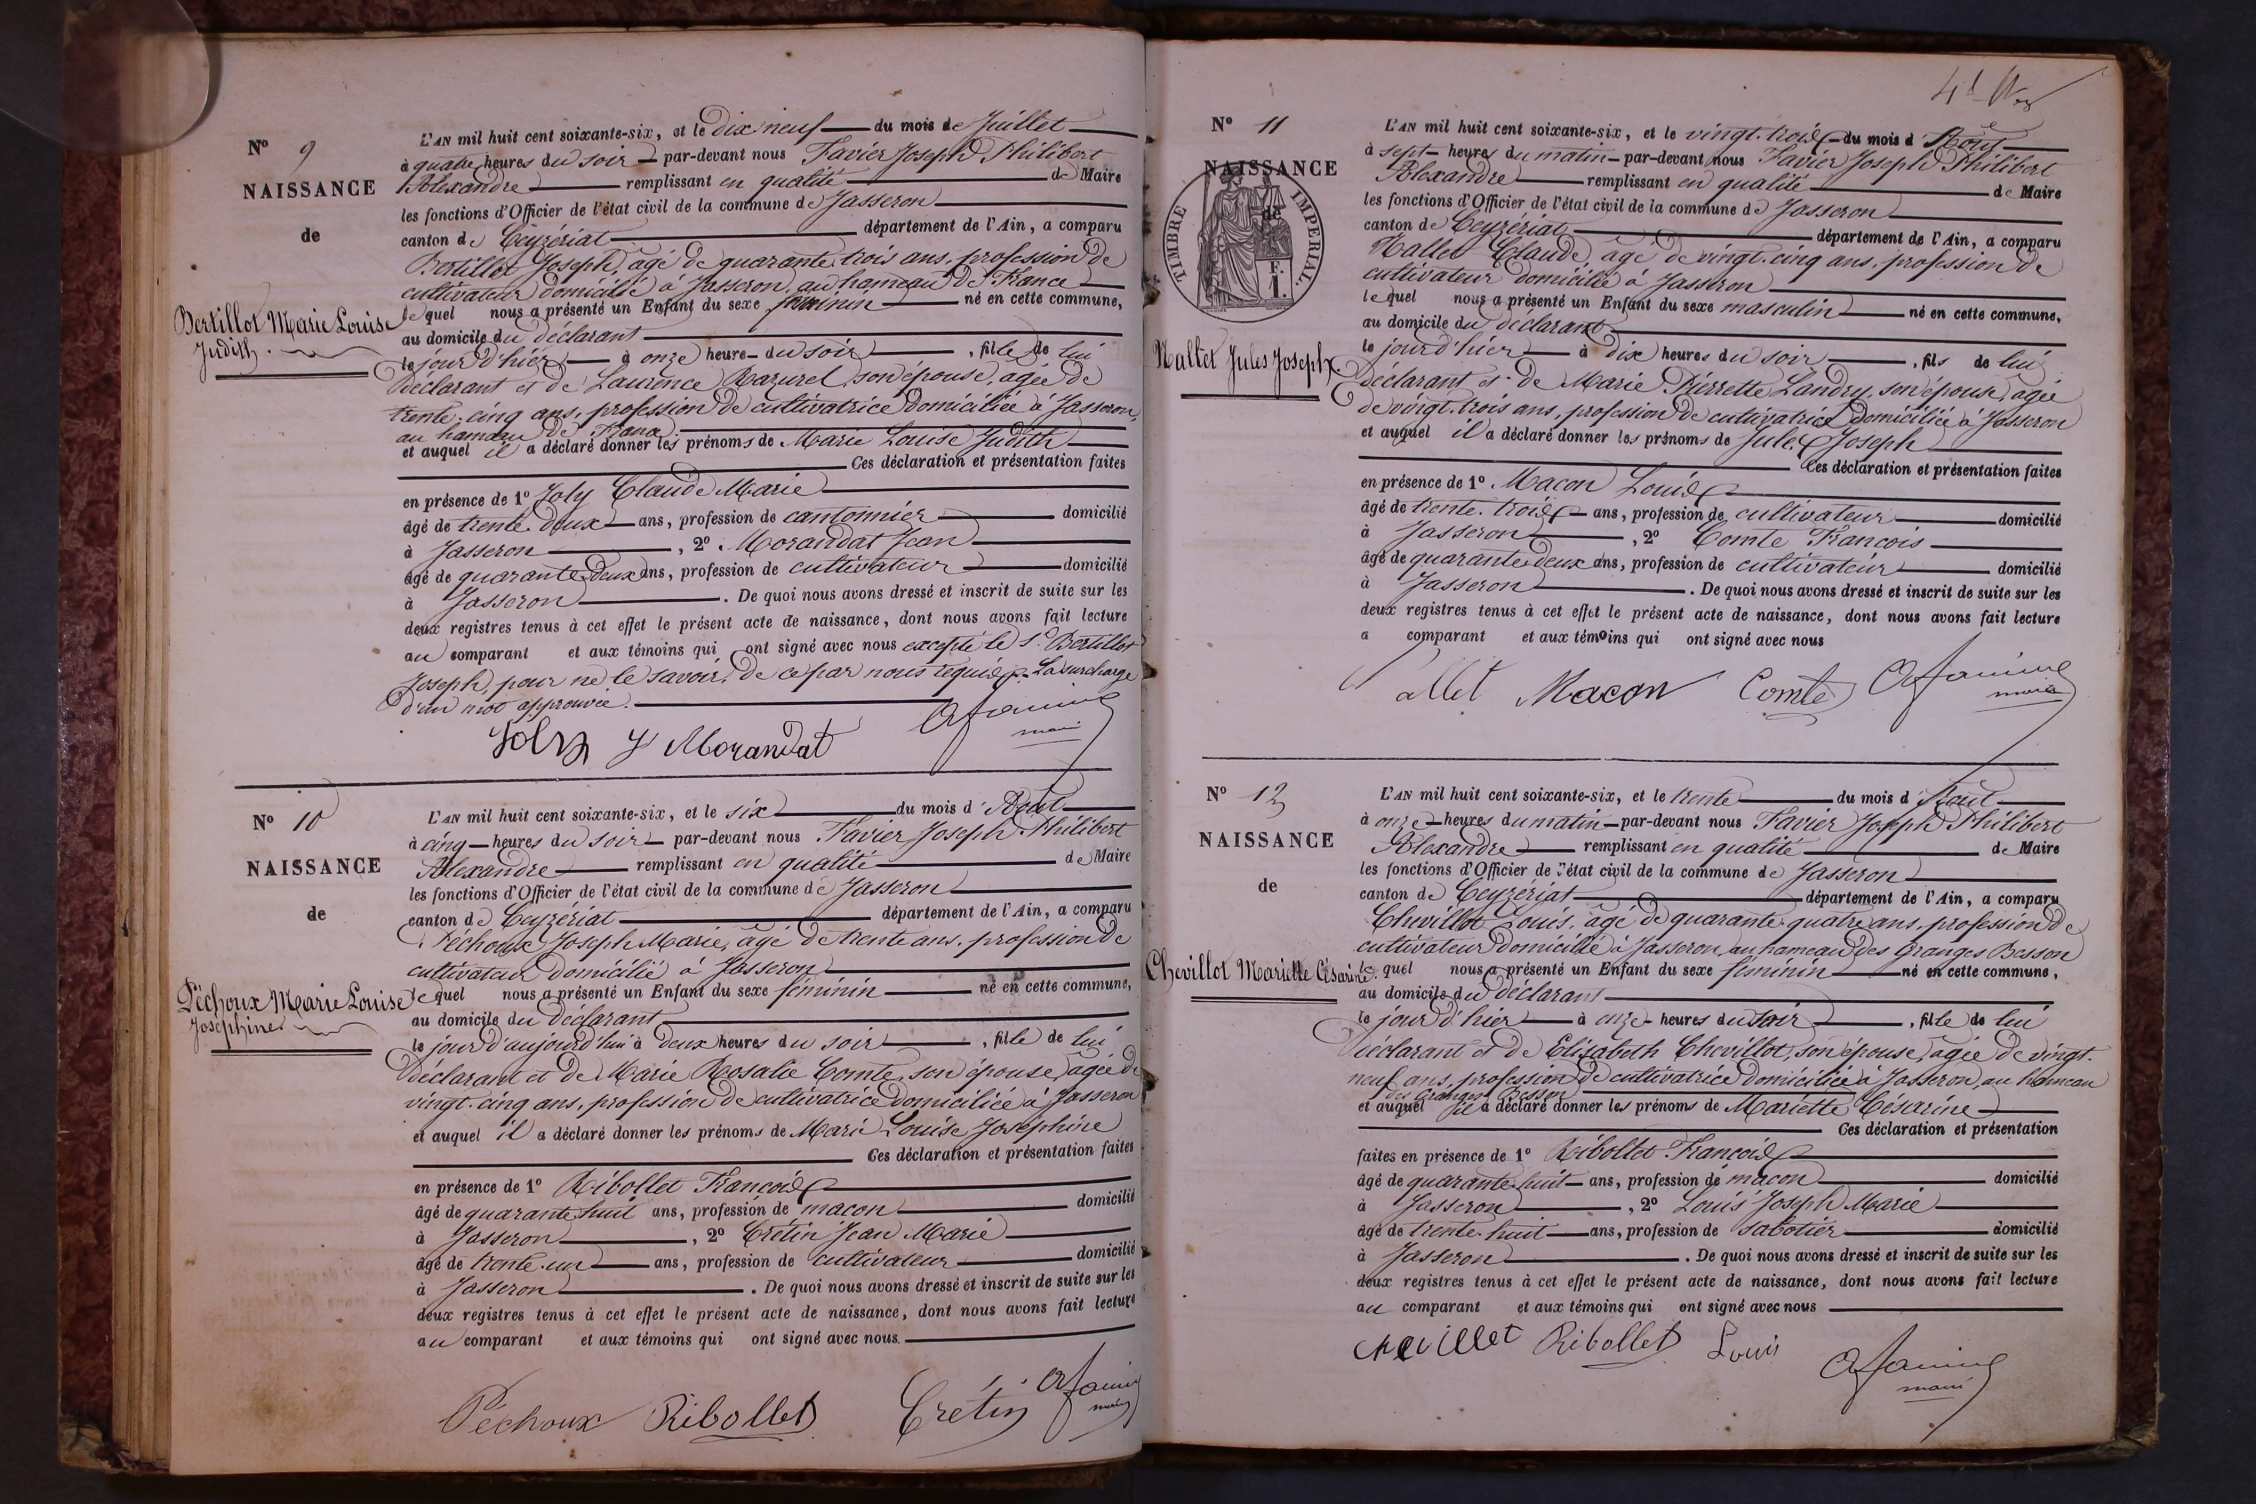 N° 9
NAISSANCE
de
Bertillot Marie Louise
Judith.
L'AN mil huit cent soixante-six, et le dix neuf du mois de Juillet
à quatre heures du soir par-devant nous Favier Joseph Philibert
Alexandre remplissant en qualité de Maire
les fonctions d'Officier de l'état civil de la commune de Jasseron
canton de Ceyzériat département de l'Ain, a comparu
Bertillot Joseph, âgé de quarante trois ans, profession de
cultivateur domicilié à Jasseron, au hameau de France
le quel nous a présenté un Enfant du sexe féminin né en cette commune,
au domicile du déclarant
le jour d'hier à onze heure du soir, fille de lui
déclarant et de Laurence Razurel, son épouse, agée de
trente-cinq ans, profession de cultivatrice domiciliée à Jasseron,
au hameau de France.
et auquel il a déclaré donner les prénoms de Marie Louise Judith
Ces déclaration et présentation faites
en présence de 1° Joly Claude Marie
âgé de trente deux ans, profession de cantonnier domicilié
à Jasseron, 2°. Morandat Jean
âgé de quarante deux ans, profession de cultivateur domicilié
à Jasseron. De quoi nous avons dressé et inscrit de suite sur les
deux registres tenus à cet effet le présent acte de naissance, dont nous avons fait lecture
au comparant et aux témoins qui ont signé avec nous excepté le Sr. Bertillot
Joseph, pour ne le savoir, de ce par nous requis. La surcharge
d'un mot approuvée.
Joly J Morandat
maire
N° 10
NAISSANCE
de
Péchoux Marie Louise
Josephine
L'AN mil huit cent soixante-six, et le six du mois d'Août
à cinq heures du soir par-devant nous Favier Joseph Philibert
Alexandre remplissant en qualité de Maire
les fonctions d'Officier de l'état civil de la commune de Jasseron
canton de Ceyzériat département de l'Ain, a comparu
Péchoux Joseph Marie, âgé de trente ans, profession de
cultivateur domicilié à Jasseron
le quel nous a présenté un Enfant du sexe féminin né en cette commune,
au domicile du déclarant
le jour d'aujourd'hui à deux heures du soir, fille de lui
déclarant et de Marie Rosalie Comte, son épouse, agée de
vingt-cinq ans, profession de cultivatrice domiciliée à Jasseron
et auquel il a déclaré donner les prénoms de Marie Louise Josephine
Ces déclaration et présentation faites
en présence de 1° Ribollet François
âgé de quarante huit ans, profession de macon domicilié
à Jasseron, 2° Crétin Jean Marie
âgé de trente-un ans, profession de cultivateur domicilié
à Jasseron. De quoi nous avons dressé et inscrit de suite sur les
deux registres tenus à cet effet le présent acte de naissance, dont nous avons fait lecture
au comparant et aux témoins qui ont signé avec nous.
Péchoux Ribollet Crétin
maire
N° 11
NAISSANCE
de
TIMBRE IMPERIAL.
1 F.
Mallet Jules Joseph
L'AN mil huit cent soixante-six, et le vingt-trois du mois d'Août
à sept heures du matin par-devant nous Favier Joseph Philibert
Alexandre remplissant en qualité de Maire
les fonctions d'Officier de l'état civil de la commune de Jasseron
canton de Ceyzériat département de l'Ain, a comparu
Mallet Claude, âgé de vingt-cinq ans, profession de
cultivateur domicilié à Jasseron
le quel nous a présenté un Enfant du sexe masculin né en cette commune,
au domicile du déclarant
le jour d'hier à dix heures du soir, fils de lui
déclarant et de Marie Pierrette Landry, son épouse, agée
de vingt-trois ans, profession de cultivatrice domiciliée à Jasseron
et auquel il a déclaré donner les prénoms de Jules Joseph
Ces déclaration et présentation faites
en présence de 1° Macon Louis
âgé de trente-trois ans, profession de cultivateur domicilié
à Jasseron, 2° Comte François
âgé de quarante deux ans, profession de cultivateur domicilié
à Jasseron. De quoi nous avons dressé et inscrit de suite sur les
deux registres tenus à cet effet le présent acte de naissance, dont nous avons fait lecture
a comparant et aux témoins qui ont signé avec nous
Mallet Macon Comte
maire
N° 12
NAISSANCE
de
Chevillot Mariette Césarine.
L'AN mil huit cent soixante-six, et le trente du mois d'Août
à onze heures du matin par-devant nous Favier Joseph Philibert
Alexandre remplissant en qualité de Maire
les fonctions d'Officier de l'état civil de la commune de Jasseron
canton de Ceyzériat département de l'Ain, a comparu
Chevillot Louis, âgé de quarante-quatre ans, profession de
cultivateur domicilié à Jasseron, au hameau des Granges Besson
le quel nous a présenté un Enfant du sexe féminin né en cette commune,
au domicile du déclarant
le jour d'hier à onze heures du soir, fille de lui
déclarant et de Elisabeth Chevillot, son épouse, agée de vingt-
neuf ans, profession de cultivatrice domiciliée à Jasseron, au hameau
des Granges Besson
et auquel il a déclaré donner les prénoms de Mariette Césarine
Ces déclaration et présentation
faites en présence de 1° Ribollet François
âgé de quarante-huit ans, profession de macon domicilié
à Jasseron, 2° Louis Joseph Marie
âgé de trente-huit ans, profession de sabotier domicilié
à Jasseron. De quoi nous avons dressé et inscrit de suite sur les
deux registres tenus à cet effet le présent acte de naissance, dont nous avons fait lecture
au comparant et aux témoins qui ont signé avec nous
chevillet Ribollet Louis
maire